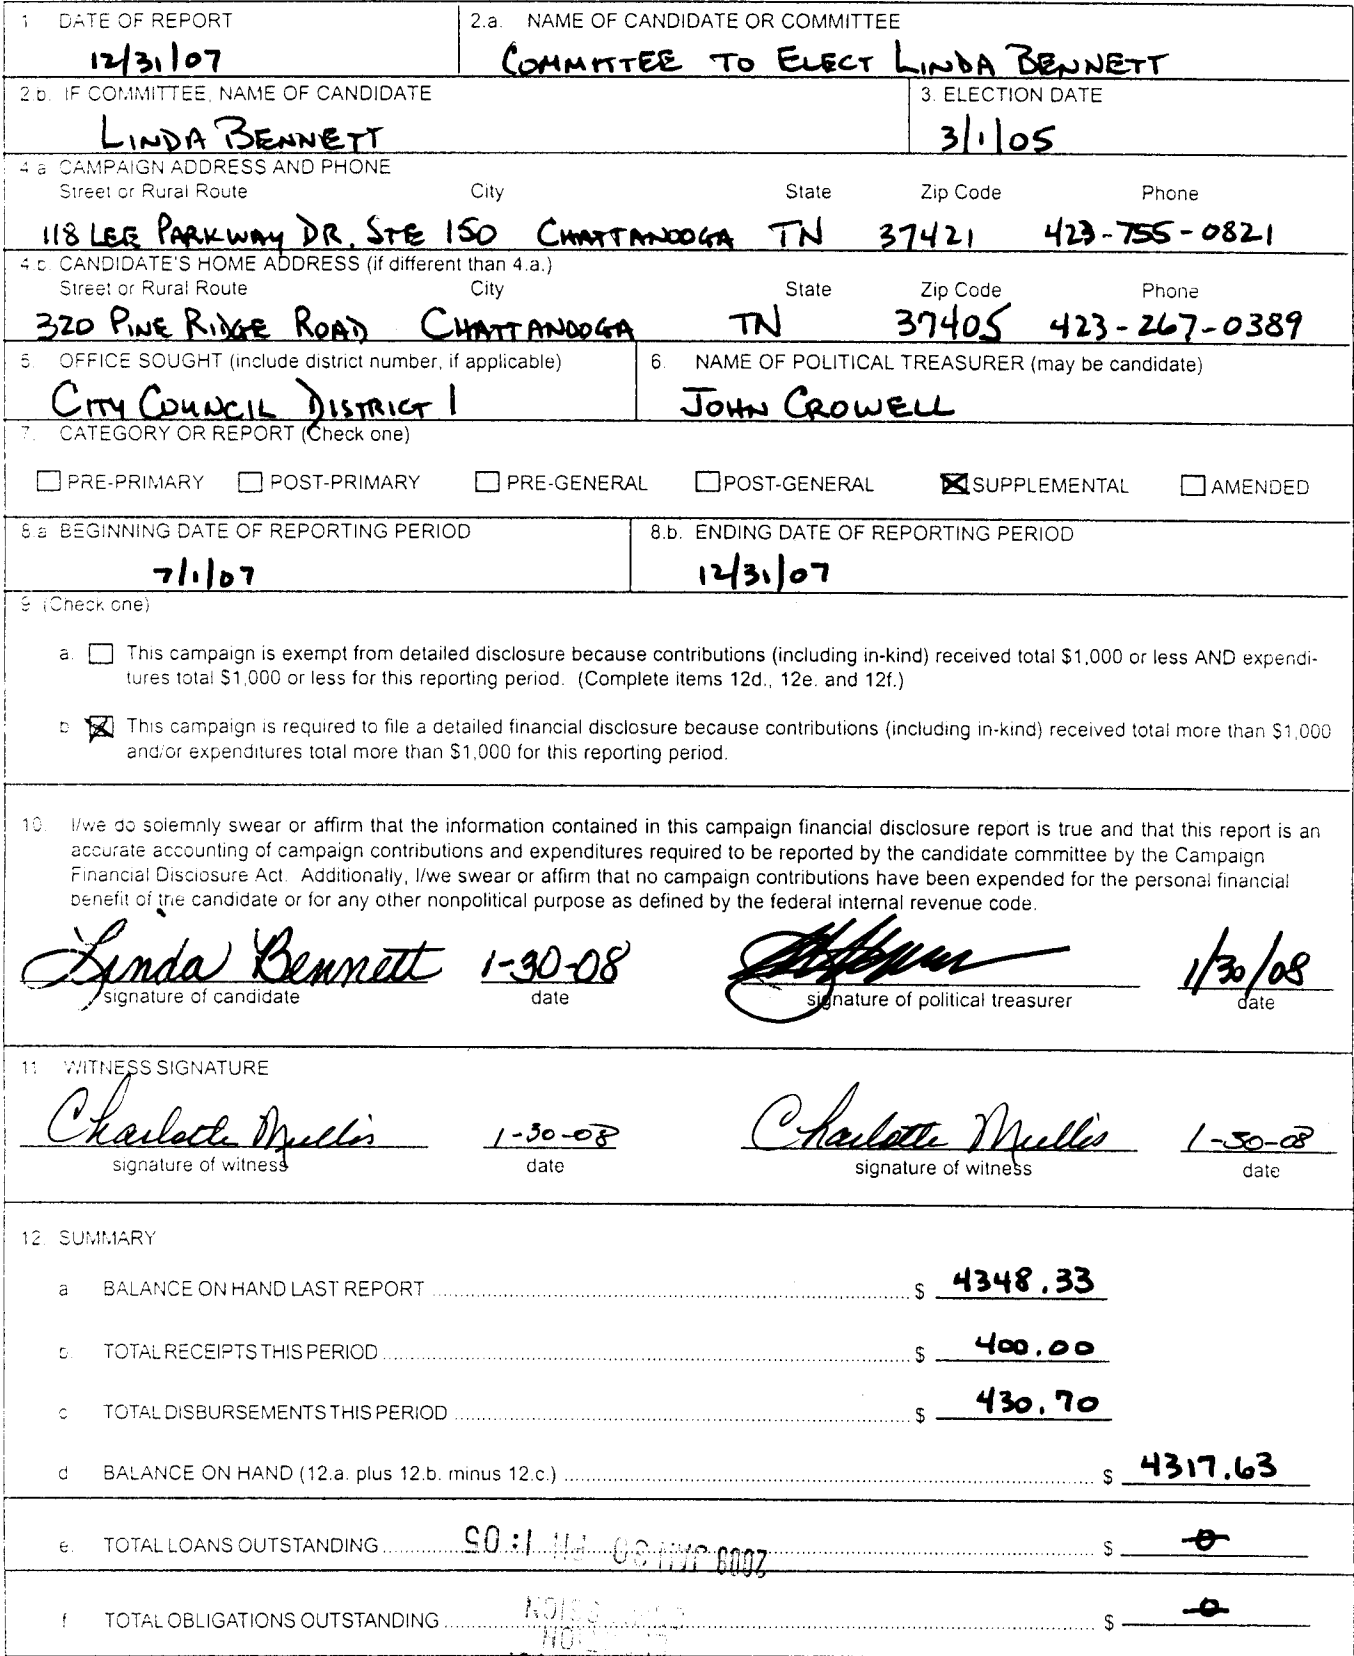 1 DATE OF REPORT
12/31/07
2.a. NAME OF CANDIDATE OR COMMITTEE
COMMITTEE TO ELECT LINDA BENNETT
2.b. IF COMMITTEE, NAME OF CANDIDATE
LINDA BENNETT
3. ELECTION DATE
3/1/05
4.a CAMPAIGN ADDRESS AND PHONE
Street or Rural Route City State Zip Code Phone
118 LEE PARKWAY DR. STE 150 CHATTANOOGA TN 37421 423-755-0821
4.b. CANDIDATE'S HOME ADDRESS (if different than 4.a.)
Street or Rural Route City State Zip Code Phone
320 PINE RIDGE ROAD CHATTANOOGA TN 37405 423-267-0389
5. OFFICE SOUGHT (include district number, if applicable)
CITY COUNCIL DISTRICT 1
6. NAME OF POLITICAL TREASURER (may be candidate)
JOHN CROWELL
7. CATEGORY OR REPORT (Check one)
PRE-PRIMARY POST-PRIMARY PRE-GENERAL POST-GENERAL SUPPLEMENTAL AMENDED
8.a BEGINNING DATE OF REPORTING PERIOD
7/1/07
8.b. ENDING DATE OF REPORTING PERIOD
12/31/07
9 (Check one)
a. This campaign is exempt from detailed disclosure because contributions (including in-kind) received total $1,000 or less AND expendi-
tures total $1,000 or less for this reporting period. (Complete items 12d., 12e. and 12f.)
b This campaign is required to file a detailed financial disclosure because contributions (including in-kind) received total more than $1,000
and/or expenditures total more than $1,000 for this reporting period.
10. I/we do solemnly swear or affirm that the information contained in this campaign financial disclosure report is true and that this report is an
accurate accounting of campaign contributions and expenditures required to be reported by the candidate committee by the Campaign
Financial Disclosure Act. Additionally, I/we swear or affirm that no campaign contributions have been expended for the personal financial
benefit of the candidate or for any other nonpolitical purpose as defined by the federal internal revenue code.
Linda Bennett 1-30-08 1/30/08
signature of candidate date signature of political treasurer date
11 WITNESS SIGNATURE
Charlotte Mullis 1-30-08 Charlotte Mullis 1-30-08
signature of witness date signature of witness date
12. SUMMARY
a BALANCE ON HAND LAST REPORT $ 4348.33
b. TOTAL RECEIPTS THIS PERIOD $ 400.00
c TOTAL DISBURSEMENTS THIS PERIOD $ 430.70
d BALANCE ON HAND (12.a. plus 12.b. minus 12.c.) $ 4317.63
e. TOTAL LOANS OUTSTANDING $ 0
2008 JAN 30 PM 1:05
f TOTAL OBLIGATIONS OUTSTANDING $ 0